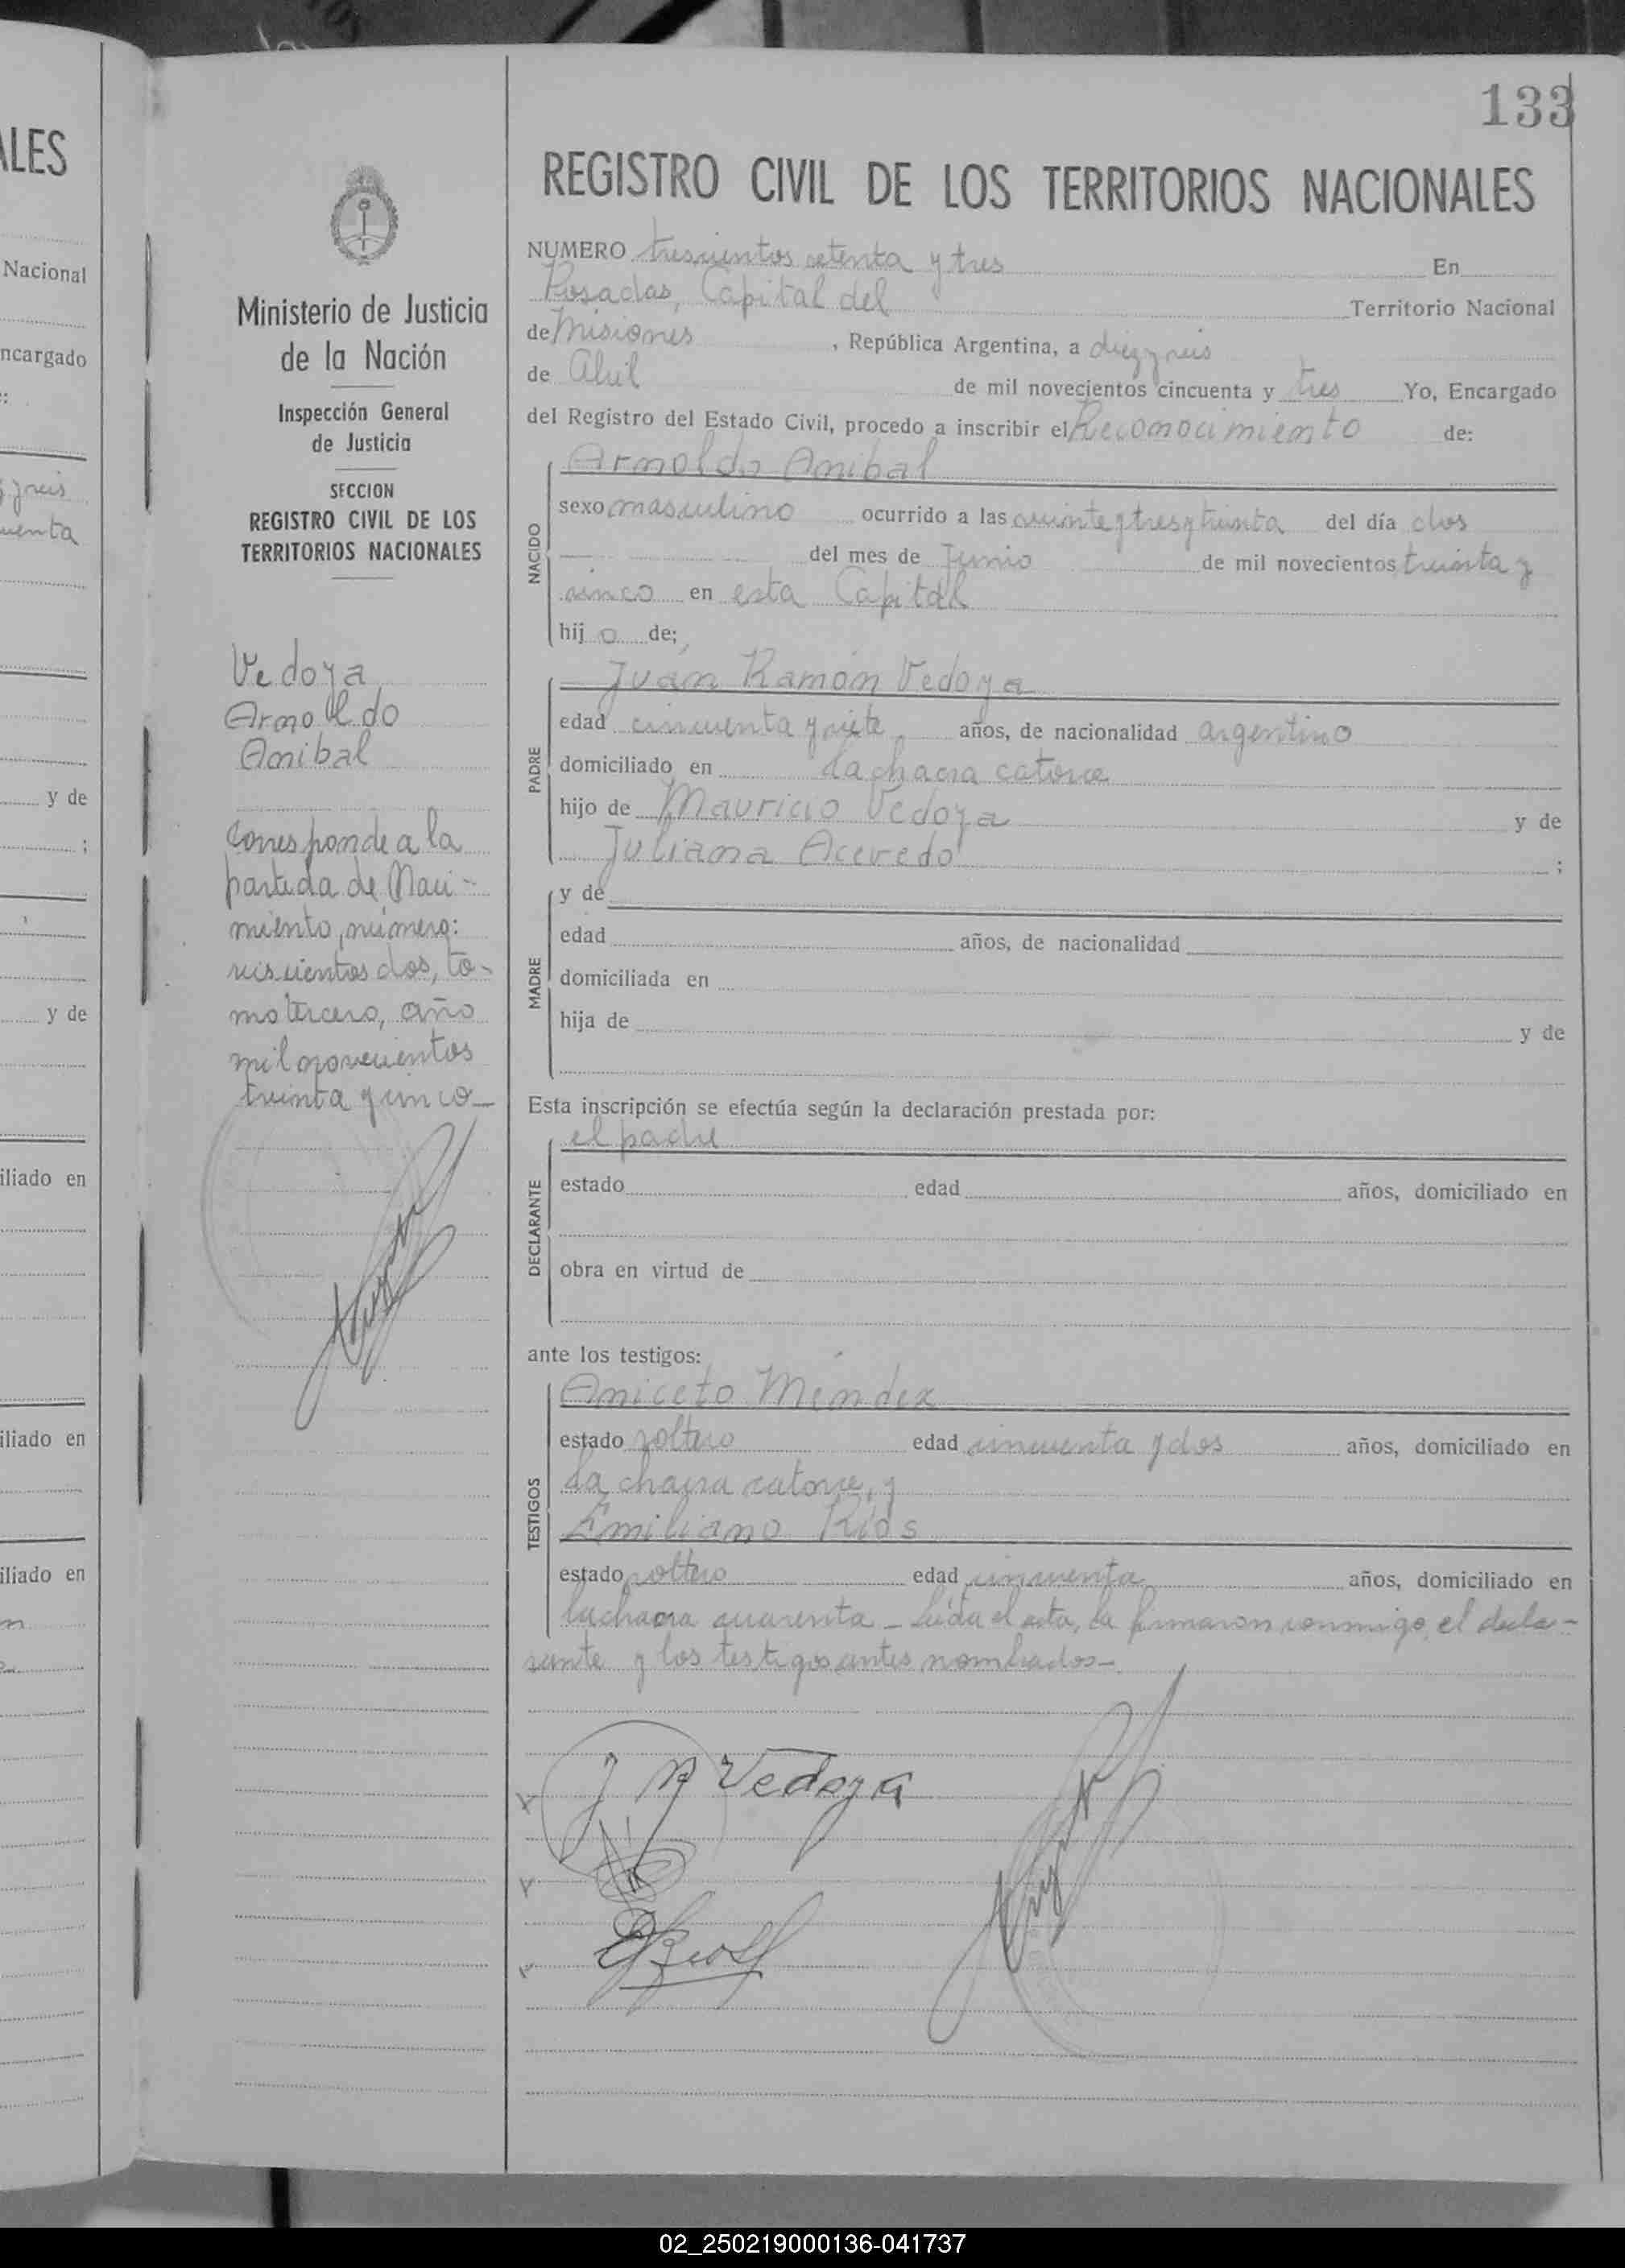 133
REGISTRO CIVIL DE LOS TERRITORIOS NACIONALES
NUMERO trescientos setenta y tres En
Posadas, Capital del Territorio Nacional
de Misiones , República Argentina, a diez y seis
de Abril de mil novecientos cincuenta y tres Yo, Encargado
del Registro del Estado Civil, procedo a inscribir el Reconocimiento de:
NACIDO
Arnoldo Anibal
sexo masculino ocurrido a las veinte y tres y treinta del día dos
— del mes de Junio de mil novecientos treinta y
cinco en esta Capital
hij o de;
PADRE
Juan Ramón Vedoya
edad cincuenta y siete años, de nacionalidad argentino
domiciliado en la chacra catorce
hijo de Mauricio Vedoya y de
Juliana Acevedo ;
MADRE
y de
edad años, de nacionalidad
domiciliada en
hija de y de
Esta inscripción se efectúa según la declaración prestada por:
DECLARANTE
el padre
estado edad años, domiciliado en
obra en virtud de
ante los testigos:
TESTIGOS
Aniceto Méndez
estado soltero edad cincuenta y dos años, domiciliado en
la chacra catorce, y
Emiliano Ríos
estado soltero edad cincuenta años, domiciliado en
la chacra cuarenta - Leída el acta, la firmaron conmigo, el decla-
rante y los testigos antes nombrados-
J R Vedoya
E Rios
Ministerio de Justicia
de la Nación
Inspección General
de Justicia
SECCION
REGISTRO CIVIL DE LOS
TERRITORIOS NACIONALES
Vedoya
Arnoldo
Anibal
Corresponde a la
partida de Naci-
miento, número:
seiscientos dos, to-
mo tercero, año
mil novecientos
treinta y cinco-
ALES
Nacional
ncargado
y seis
uenta
y de
;
y de
iliado en
iliado en
iliado en
02_250219000136-041737